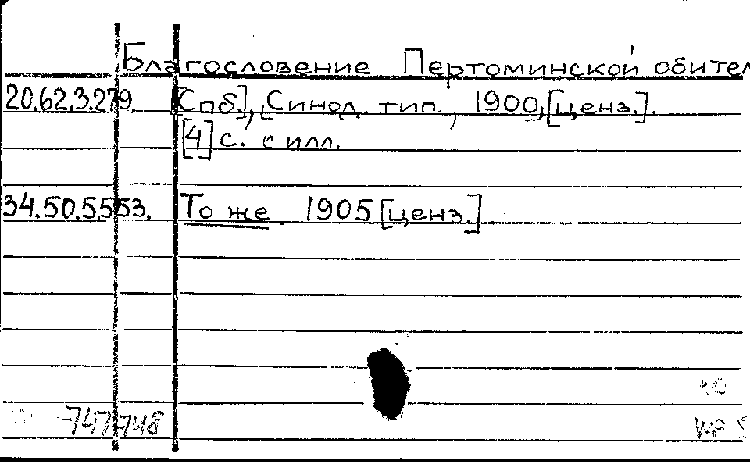 Благословение Пертоминской обител
20.62.3.279. [Спб.], [Синод. тип., 1900, [ценз.].
[4] с. с илл.
34.50.5.553. То же 1905 [ценз.]
747 748